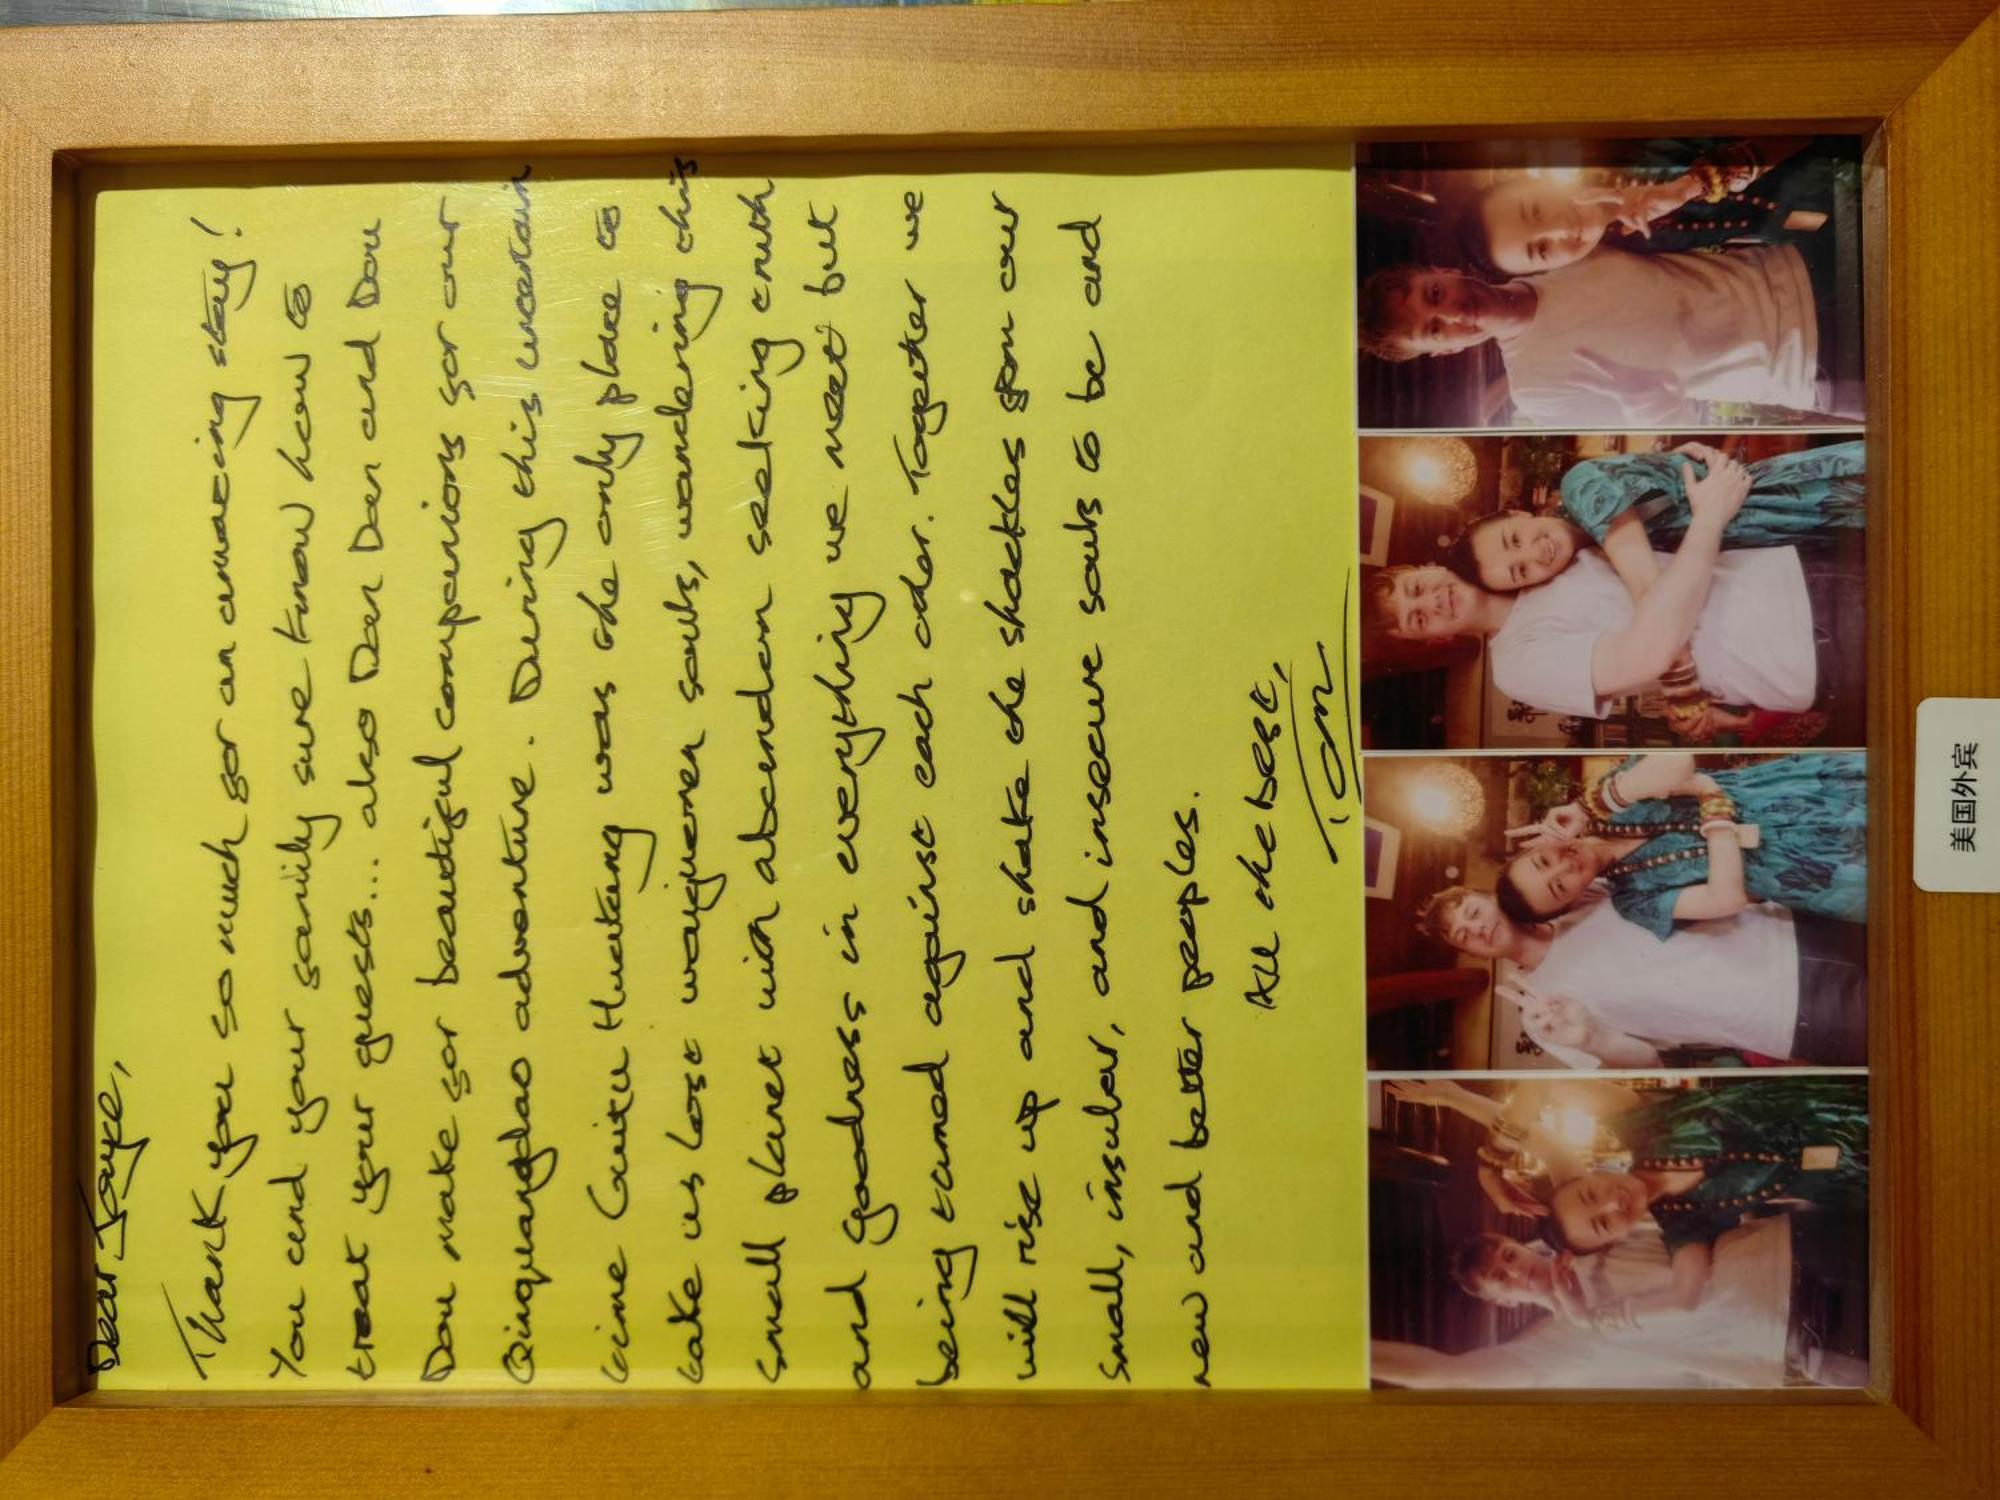 Dear Joyce,
Thank you so much for an amazing stay!
You and your family sure know how to
treat your guests... also Dan Dan and Dou
Dou make for beautiful companions for our
Qinquangdao adventure. During this uncertain
time Huitang was the only place to
take us lost souls, wandering this
small planet with abandon seeking truth
and goodness in everything we meet but
being turned against each other. Together we
will rise up and shake the shackles from our
small, insular, and insecure souls to be and
new and better peoples.
All the best,
Tom
美国外宾